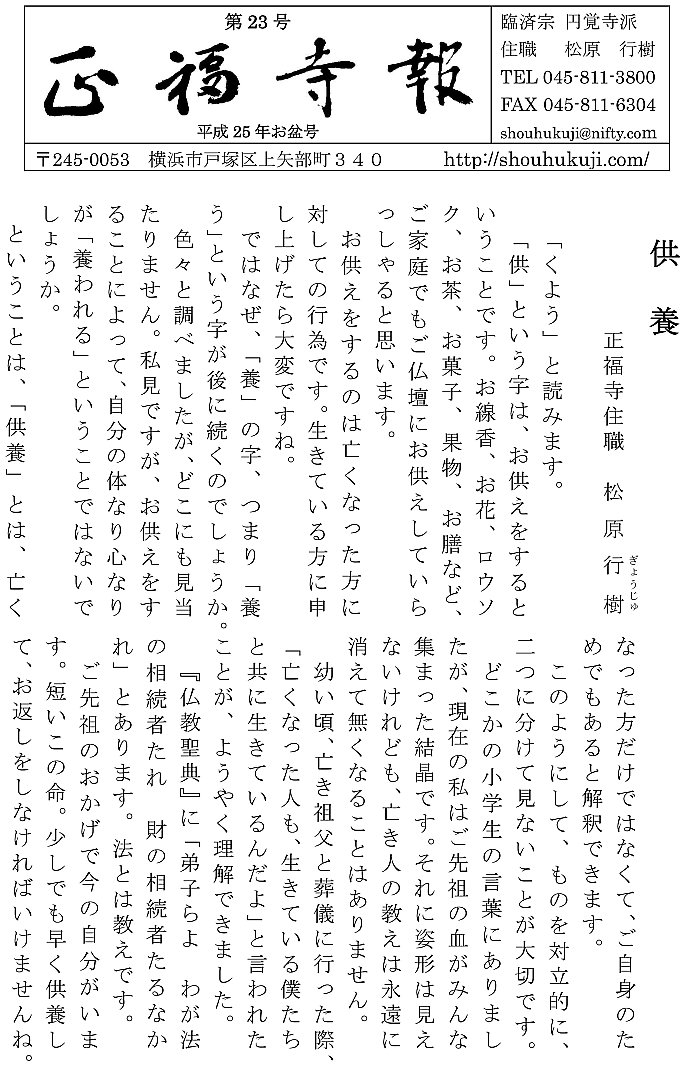 第23号
正福寺報
平成25年お盆号
臨済宗 円覚寺派
住職 松原 行樹
TEL 045-811-3800
FAX 045-811-6304
shouhukuji@nifty.com
〒245-0053 横浜市戸塚区上矢部町３４０ http://shouhukuji.com/
供養
正福寺住職 松原行樹
ぎょうじゅ
「くよう」と読みます。
「供」という字は、お供えをすると
いうことです。お線香、お花、ロウソ
ク、お茶、お菓子、果物、お膳など、
ご家庭でもご仏壇にお供えしていら
っしゃると思います。
お供えをするのは亡くなった方に
対しての行為です。生きている方に申
し上げたら大変ですね。
ではなぜ、「養」の字、つまり「養
う」という字が後に続くのでしょうか。
色々と調べましたが、どこにも見当
たりません。私見ですが、お供えをす
ることによって、自分の体なり心なり
が「養われる」ということではないで
しょうか。
ということは、「供養」とは、亡く
なった方だけではなくて、ご自身のた
めでもあると解釈できます。
このようにして、ものを対立的に、
二つに分けて見ないことが大切です。
どこかの小学生の言葉にありまし
たが、現在の私はご先祖の血がみんな
集まった結晶です。それに姿形は見え
ないけれども、亡き人の教えは永遠に
消えて無くなることはありません。
幼い頃、亡き祖父と葬儀に行った際、
「亡くなった人も、生きている僕たち
と共に生きているんだよ」と言われた
ことが、ようやく理解できました。
『仏教聖典』に「弟子らよ わが法
の相続者たれ 財の相続者たるなか
れ」とあります。法とは教えです。
ご先祖のおかげで今の自分がいま
す。短いこの命。少しでも早く供養し
て、お返しをしなければいけませんね。